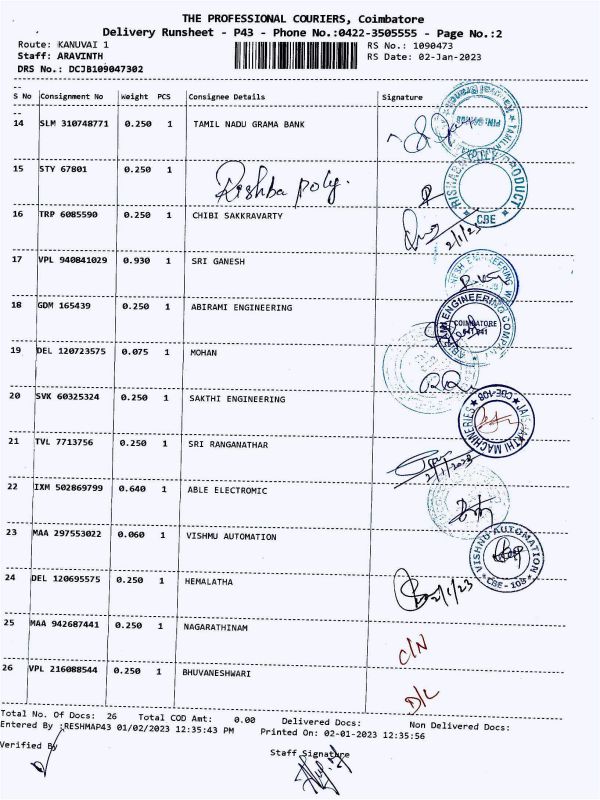 THE PROFESSIONAL COURIERS, Coimbatore
Delivery Runsheet - P43 - Phone No.:0422-3505555 - Page No.:2
Route: KANUVAI 1 RS No.: 1090473
Staff: ARAVINTH RS Date: 02-Jan-2023
DRS No.: DCJB109047302
S No Consignment No Weight PCS Consignee Details Signature
14 SLM 310748771 0.250 1 TAMIL NADU GRAMA BANK
15 STY 67801 0.250 1 Rishba poly.
RISHABA POLY PRODUCT CBE
16 TRP 6085590 0.250 1 CHIBI SAKKRAVARTY 2/1/23
17 VPL 940841029 0.930 1 SRI GANESH
18 GDM 165439 0.250 1 ABIRAMI ENGINEERING
ABIRAMI ENGINEERING COMPANY COIMBATORE 641 041
19 DEL 120723575 0.075 1 MOHAN
20 SVK 60325324 0.250 1 SAKTHI ENGINEERING
JAISAKTHI MACHINERIES CBE-108
21 TVL 7713756 0.250 1 SRI RANGANATHAR 2/1/2023
22 IXM 502869799 0.640 1 ABLE ELECTROMIC
23 MAA 297553022 0.060 1 VISHMU AUTOMATION
VISHNU AUTOMATION CBE - 108
24 DEL 120695575 0.250 1 HEMALATHA 2/1/23
25 MAA 942687441 0.250 1 NAGARATHINAM C/N
26 VPL 216088544 0.250 1 BHUVANESHWARI D/L
Total No. Of Docs: 26 Total COD Amt: 0.00 Delivered Docs: Non Delivered Docs:
Entered By :RESHMAP43 01/02/2023 12:35:43 PM Printed On: 02-01-2023 12:35:56
Verified By Staff Signature